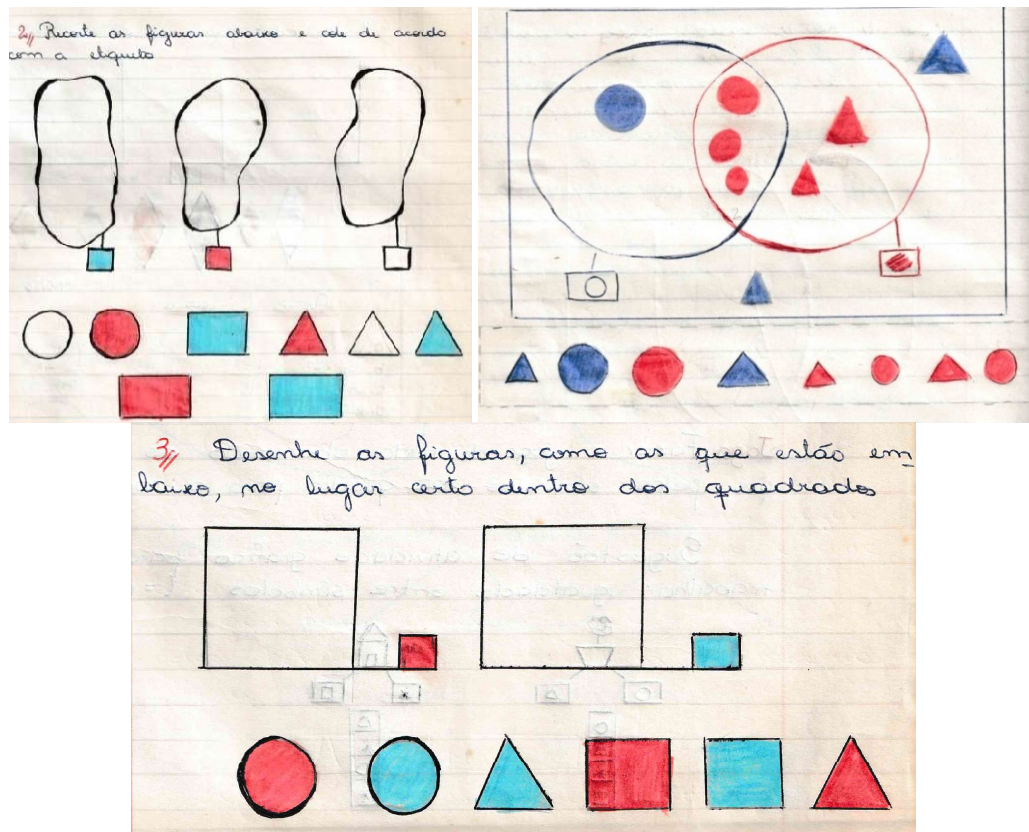 2,, Recorte as figuras abaixo e cole de acordo
com a etiqueta
3,, Desenhe as figuras, como as que estão em_
baixo, no lugar certo dentro dos quadrados